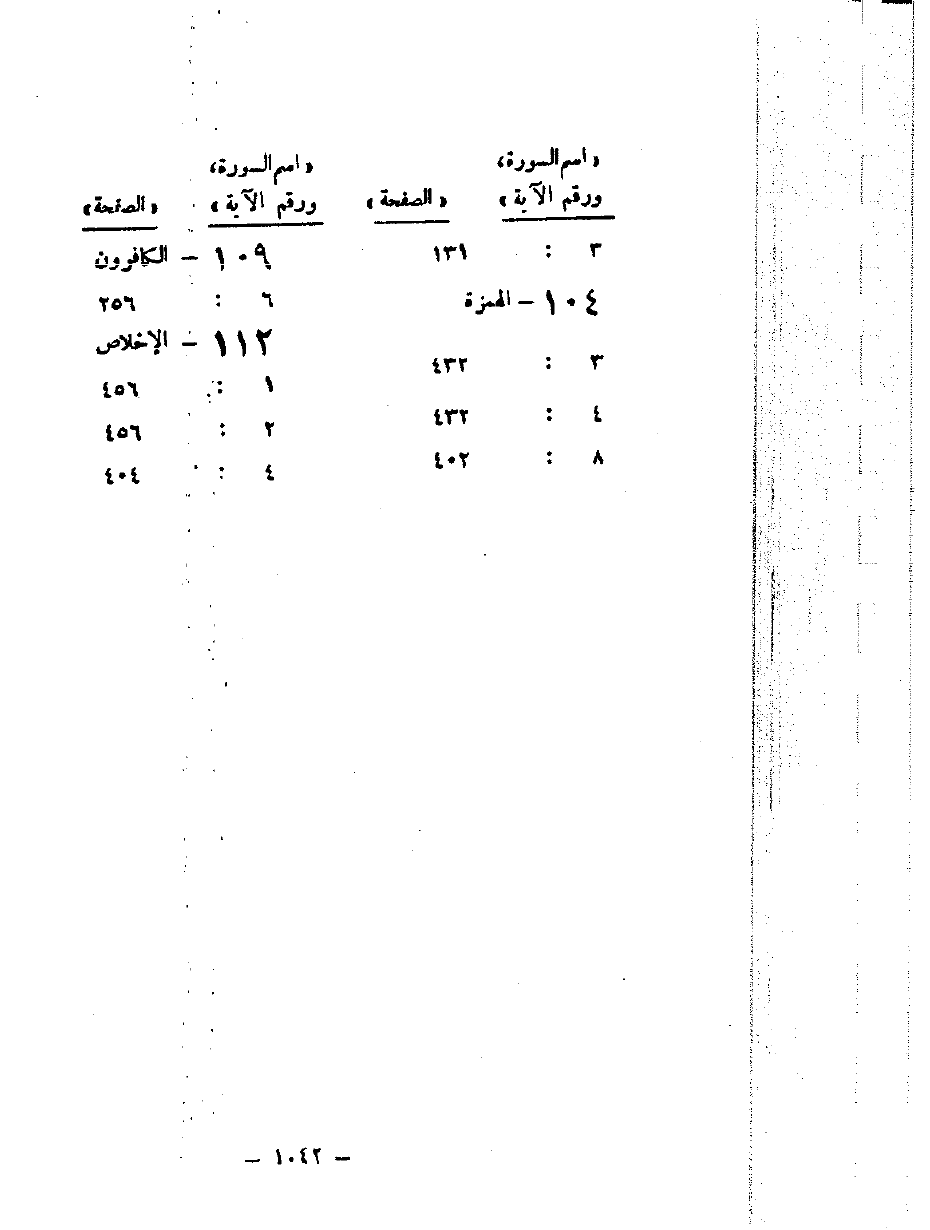 « اسم السورة،
ورقم الآية » « الصفحة »
٣ : ١٣١
١٠٤ – الهمزة
٣ : ٤٣٢
٤ : ٤٣٢
٨ : ٤٠٢
« اسم السورة،
ورقم الآية » « الصفحة »
١٠٩ – الكافرون
٦ : ٢٥٦
١١٢ – الإخلاص
١ : ٤٥٦
٢ : ٤٥٦
٤ : ٤٠٤
– ١٠٤٢ –